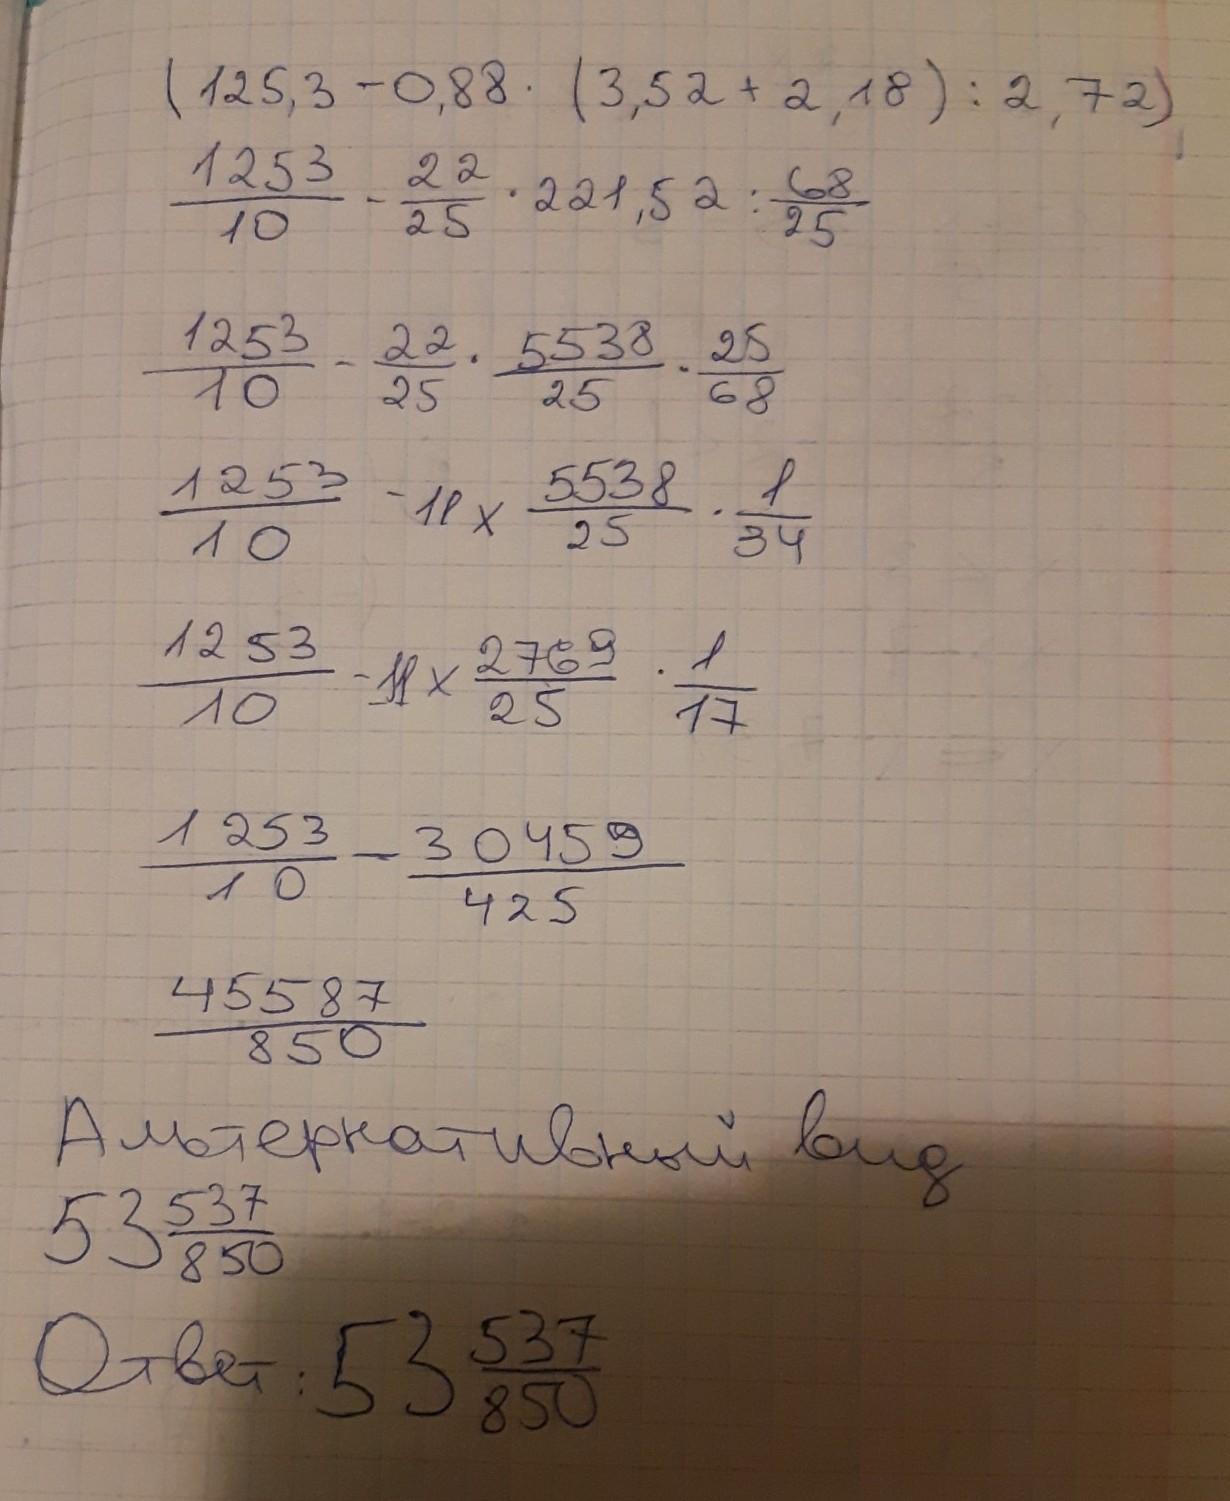 (125,3-0,88·(3,52+2,18):2,72)
1253/10 - 22/25 · 221,52 : 68/25
1253/10 - 22/25 · 5538/25 · 25/68
1253/10 - 11 x 5538/25 · 1/34
1253/10 - 11 x 2769/25 · 1/17
1253/10 - 30459/425
45587/850
Альтернативный вид
53 537/850
Ответ: 53 537/850